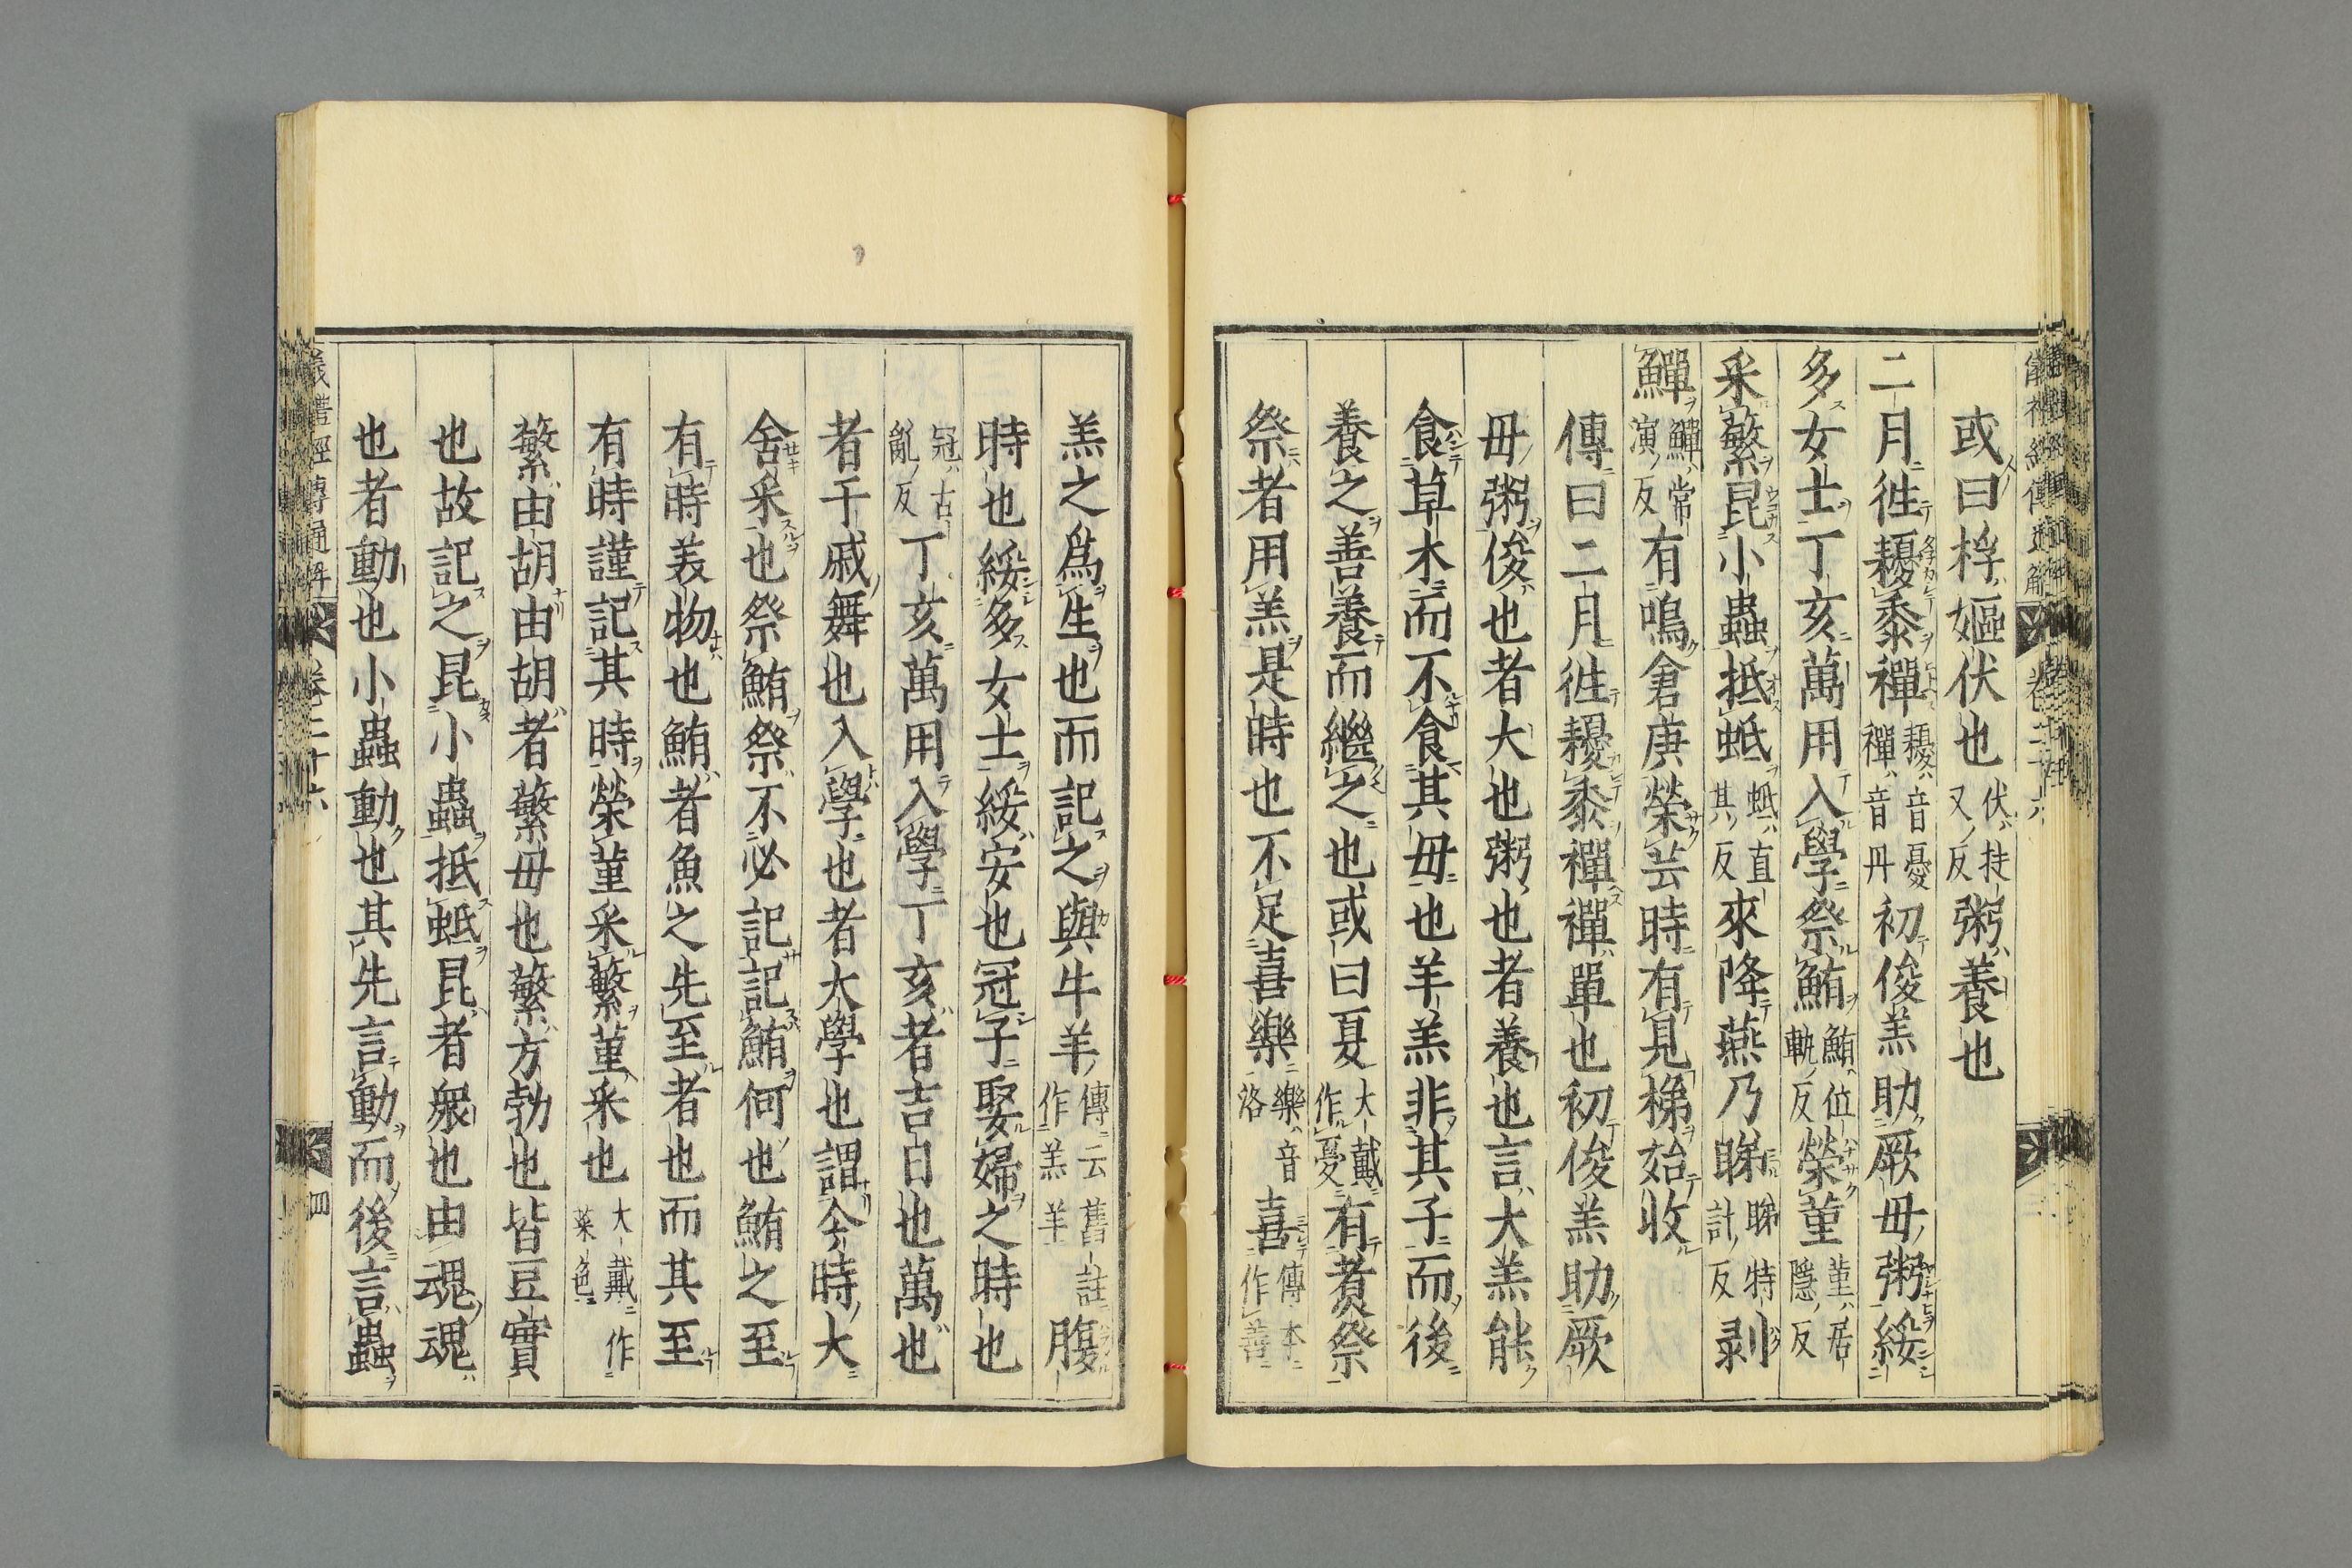 或曰桴嫗伏也伏扶又反粥養也
二月徃耰黍襌耰音憂襌音丹初俊羔助厥毋粥綏
多女士丁亥萬用入學祭鮪鮪位軌反榮菫菫居隱反
采蘩昆小蟲抵蚳蚳直其反來降燕乃睇睇特計反剥
鱓鱓常演反有鳴倉庚榮芸時有見稊始收
傳曰二月徃耰黍襌襌單也初俊羔助厥
毋粥俊也者大也粥也者養也言大羔能
食草木而不食其毋也羊羔非其子而後
養之善養而繼之也或曰夏大戴作憂有煑祭
祭者用羔是時也不足喜樂樂音洛喜傳本作善
羔之爲生也而記之與牛羊傳云舊註作羔羊腹
時也綏多女士綏安也冠子娶婦之時也
冠古亂反丁亥萬用入學丁亥者吉日也萬也
者干戚舞也入學也者大學也謂今時大
舍采也祭鮪祭不必記記鮪何也鮪之至
有時美物也鮪者魚之先至者也而其至
有時謹記其時榮菫采蘩菫采也大戴作菜色
蘩由胡由胡者蘩毋也蘩方勃也皆豆實
也故記之昆小蟲抵蚳昆者衆也由魂魂
也者動也小蟲動也其先言動而後言蟲
儀禮經傳通解 卷二十六 四